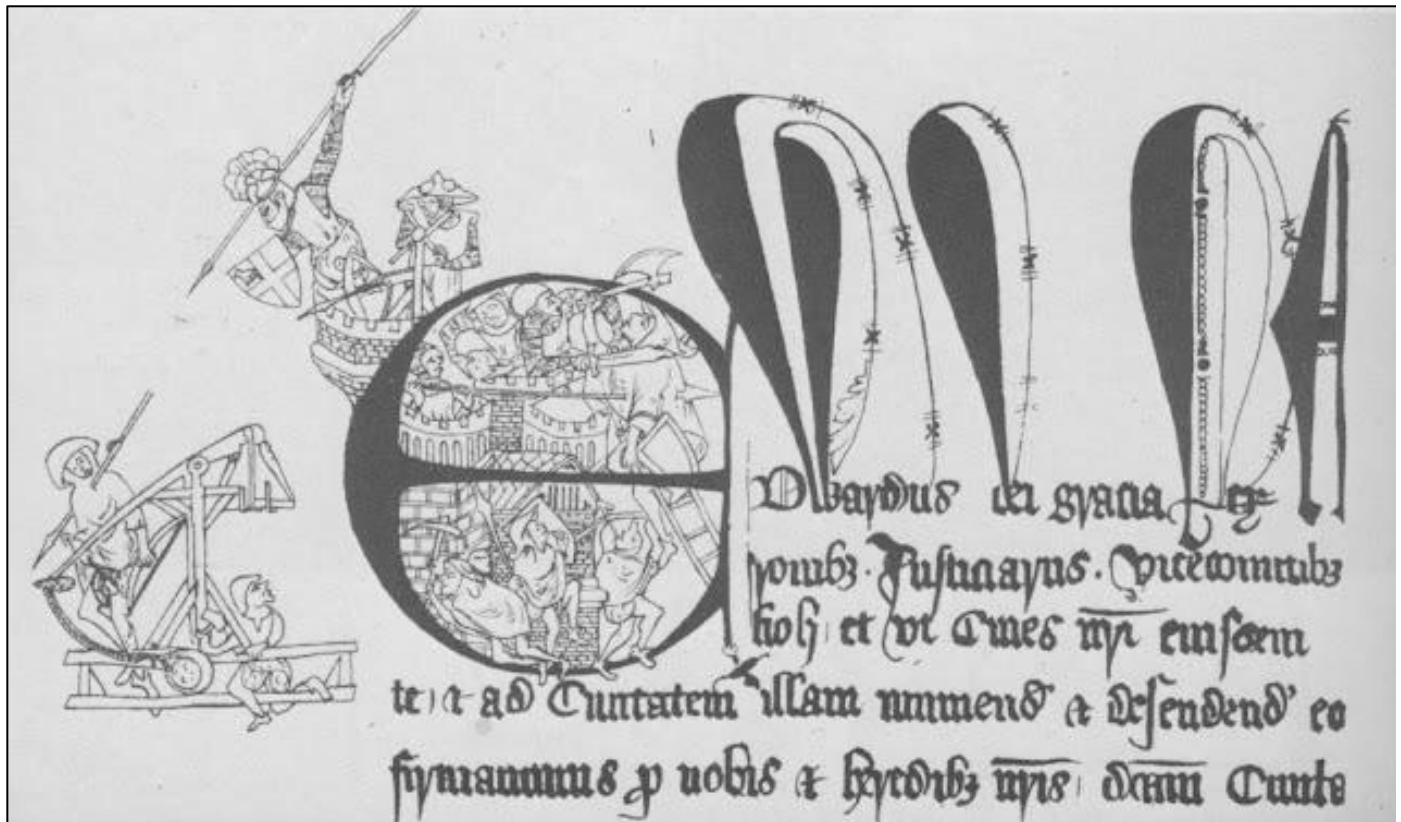 Edwardus dei gracia Rex
ronibꝫ . Justiciariis . Vicecomitibꝫ
et Ciues nr̄i eiusdem
te et ad Ciuitatem illam muniend' & defendend' eo
firmauimus ꝑ nobis & heredibꝫ nr̄is dc̄am Ciuita